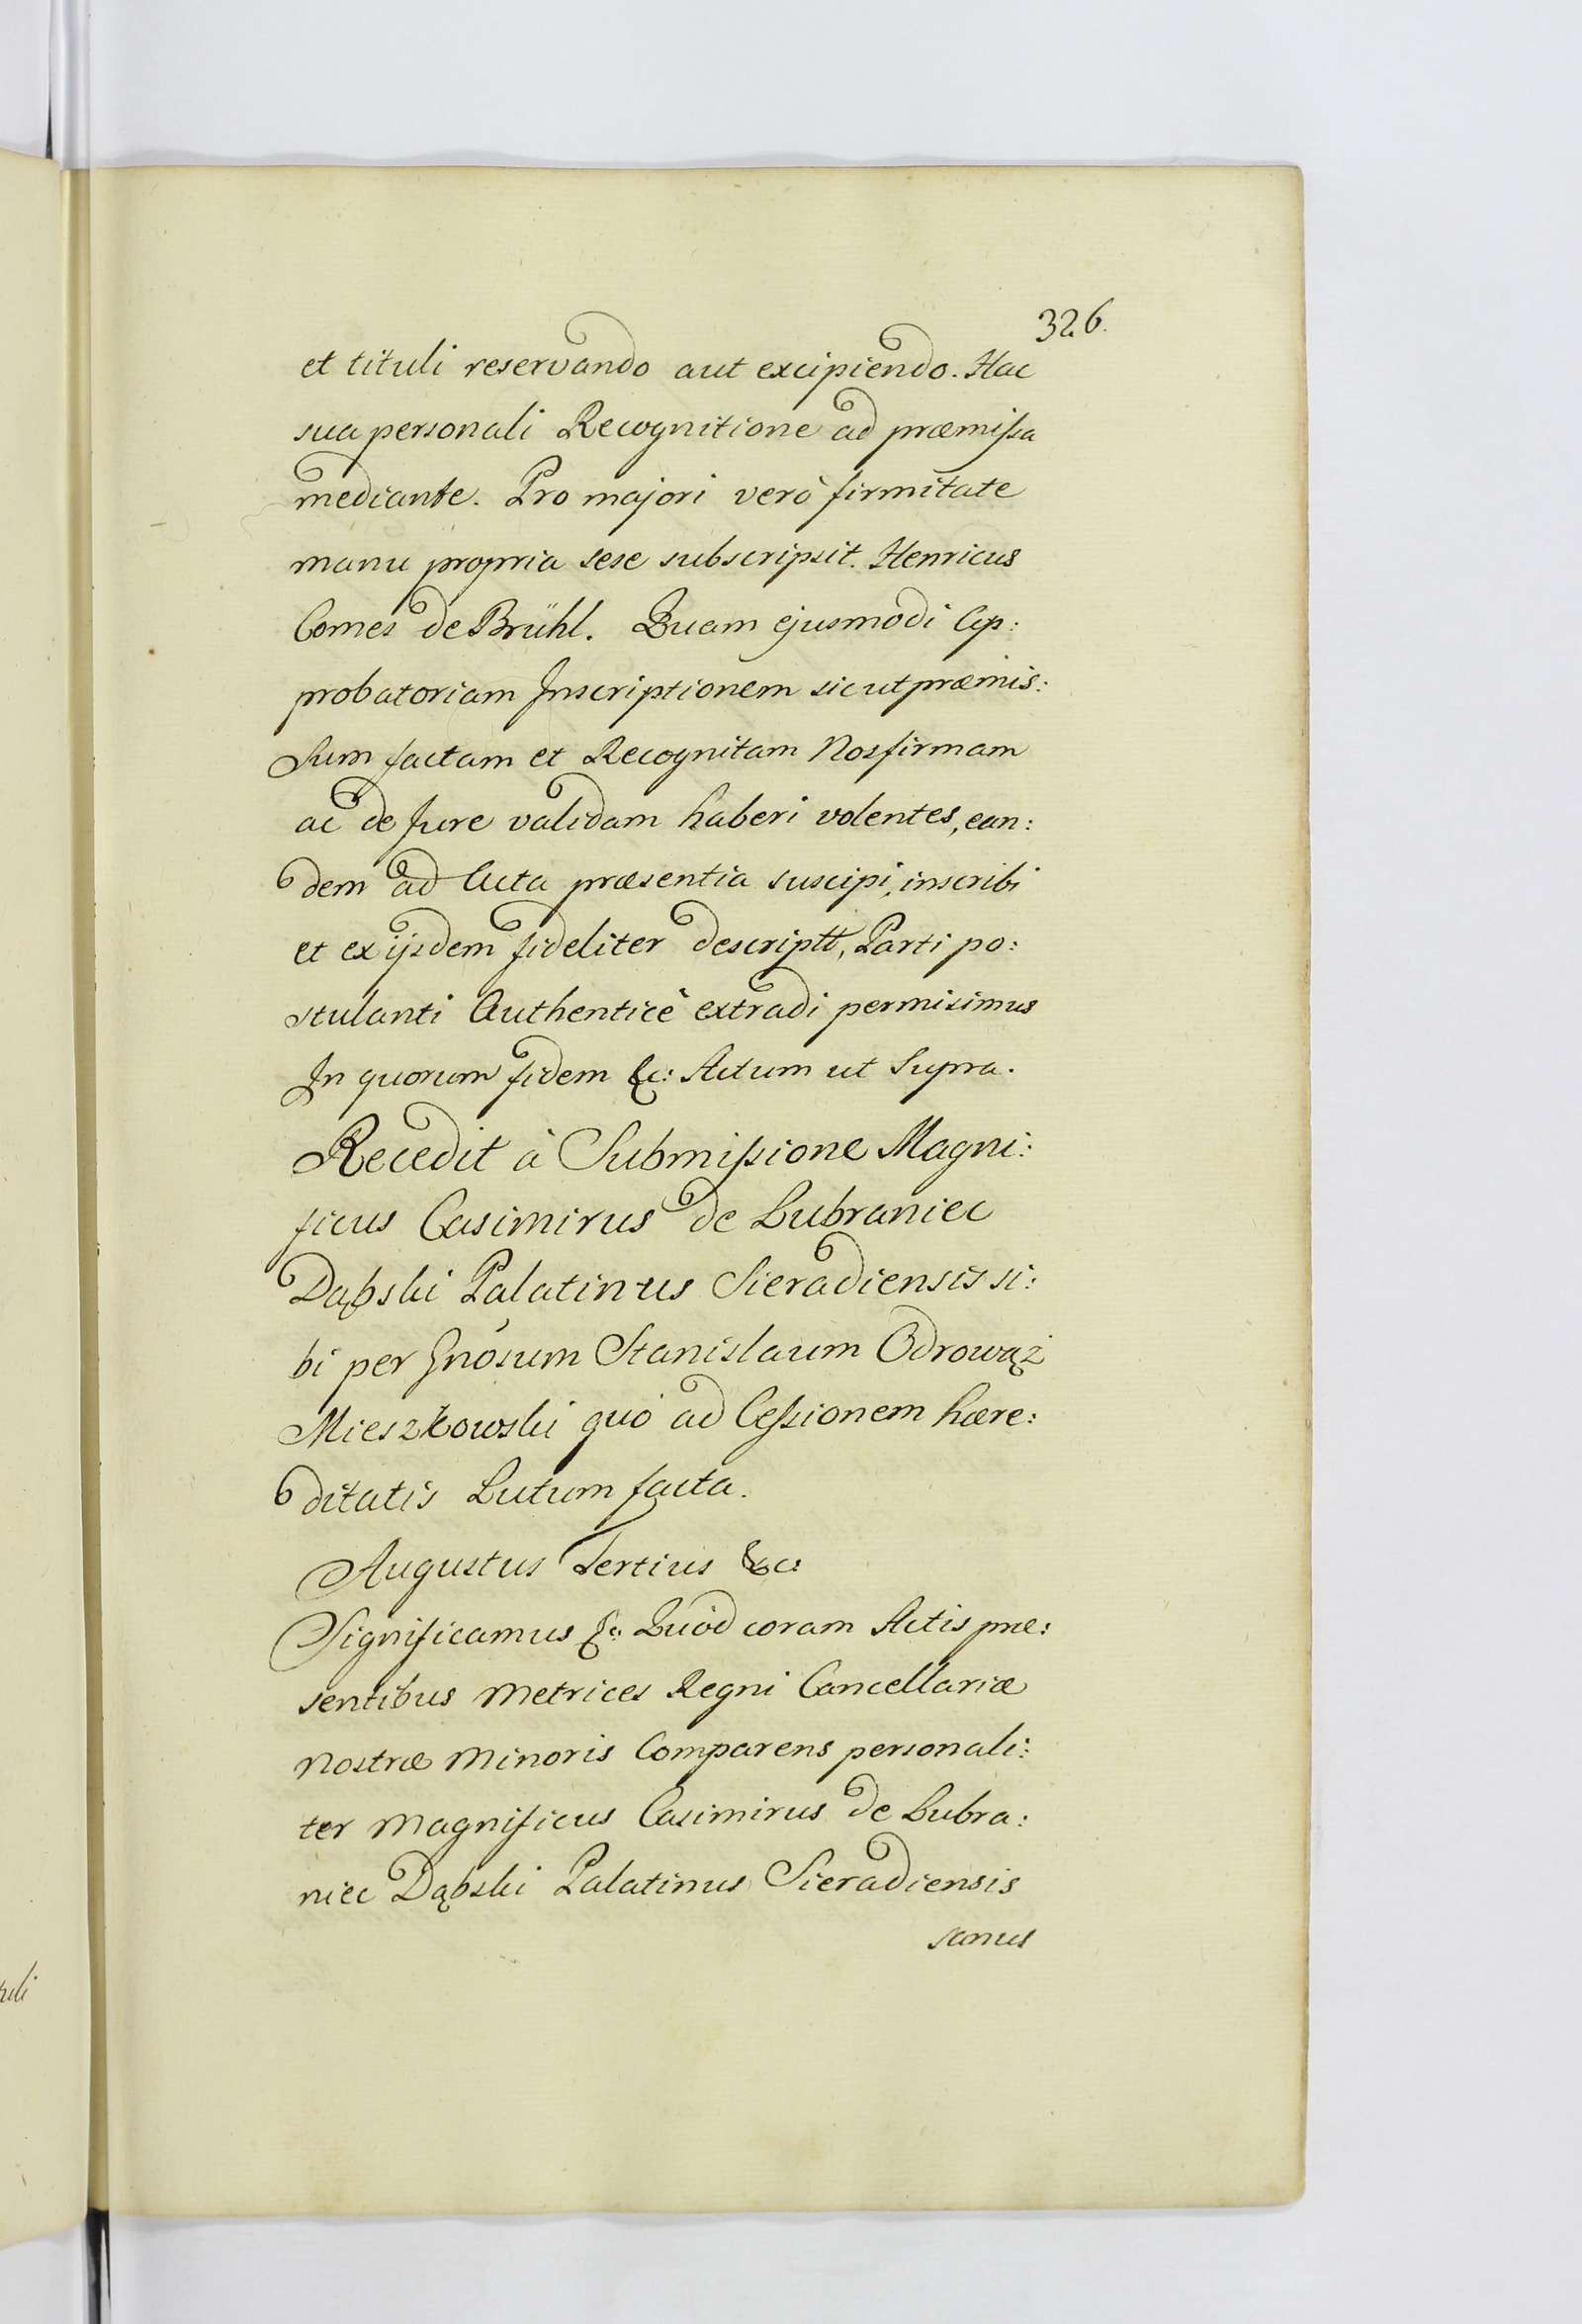 326.
et tituli reservando aut excipiendo. Hac
sua personali Recognitione ad præmiſsa
mediante. Pro majori verò firmitate
manu propria sese subscripsit. Henricus
Comes de Brühl. Quam ejusmodi Ap:
probatoriam Inscriptionem sicut præmis:
sum factam et Recognitam Nos firmam
ac de Jure validam haberi volentes, ean:
dem ad Acta præsentia suscipi, inscribi
et ex ijsdem fideliter descriptt, Parti po:
stulanti Authenticè extradi permisimus
In quorum fidem &c: Actum ut Supra.
Recedit à Submiſsione Magni:
ficus Casimirus de Lubraniec
Dąbski Palatinus Sieradiensis si:
bi per Gnosum Stanislaum Odrowąż
Mieszkowski quò ad Ceſsionem hære:
ditatis Lutum facta.
Augustus Tertius &c:
Significamus &c: Quòd coram Actis præ:
sentibus Metrices Regni Cancellariæ
Nostræ Minoris Comparens personali:
ter Magnificus Casimirus de Lubra:
niec Dąbski Palatinus Sieradiensis
sanus